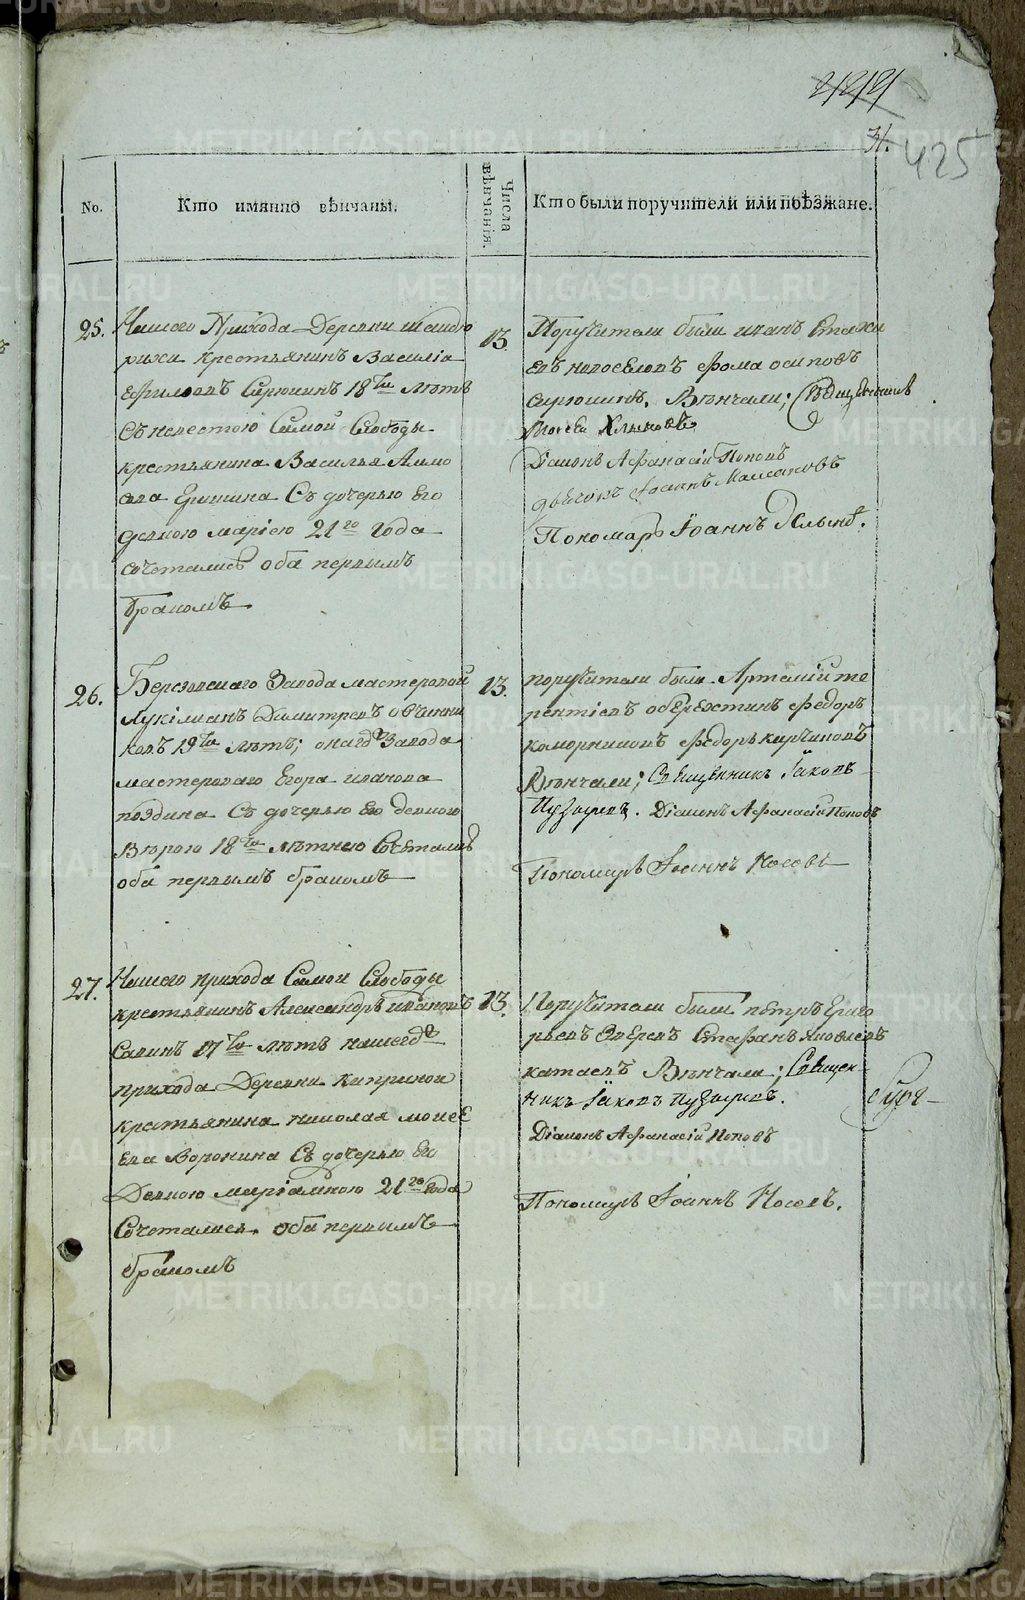 31.
425
No.
Кто имянно вѣнчаны.
Числа вѣнчанія.
Кто были поручители или поѣзжане.
25.
Нашего Прихода Деревни шандю
рихи крестьянинъ Василіа
18ти лѣтъ
съ невестою Самой Слободы
крестьянина Василья
Съ дочерью Его
девкою маріею 21го Года
сочетались оба первымъ
бракомъ
13.
Поручители были иванъ
новоселовъ фома осиповъ
сирюшинъ. Вѣнчали; Священникъ
Діаконъ Афанасій Поповъ
дьячокъ Іоаннъ
Пономарь Іоаннъ
26.
Березовскаго Завода мастеровой
Лукіліанъ Димитревъ овчинни
ковъ 19ти лѣтъ; онагожъ Завода
мастероваго Егора иванова
поздина Съ дочерью Его девкою
Вѣрою 18ти лѣтнею Сочетались
оба первымъ бракомъ
13.
поручители были Артемій те
рентіевъ оберюхтинъ Федоръ
коморниковъ Федоръ кирпиковъ
Вѣнчали; Священникъ Іаковъ
Пузыревъ. Діаконъ Афанасій Поповъ
Пономарь Іоаннъ Носовъ
27.
Нашего прихода Самой Слободы
крестьянинъ Александръ ивановъ
Савинъ 17ти лѣтъ нашегожъ
прихода Деревни Каприной
крестьянина николая моисе
ева Воронина Съ дочерью Его
Девкою маріамною 21го Года
Сочетались оба первымъ
бракомъ
13.
Поручители были петръ Григо
рьевъ Зверевъ Стефанъ Яковлевъ
катаевъ Вѣнчали; Священ-
никъ Іаковъ Пузыревъ.
Діаконъ Афанасій Поповъ
Пономарь Іоаннъ Носовъ.
METRIKI.GASO-URAL.RU